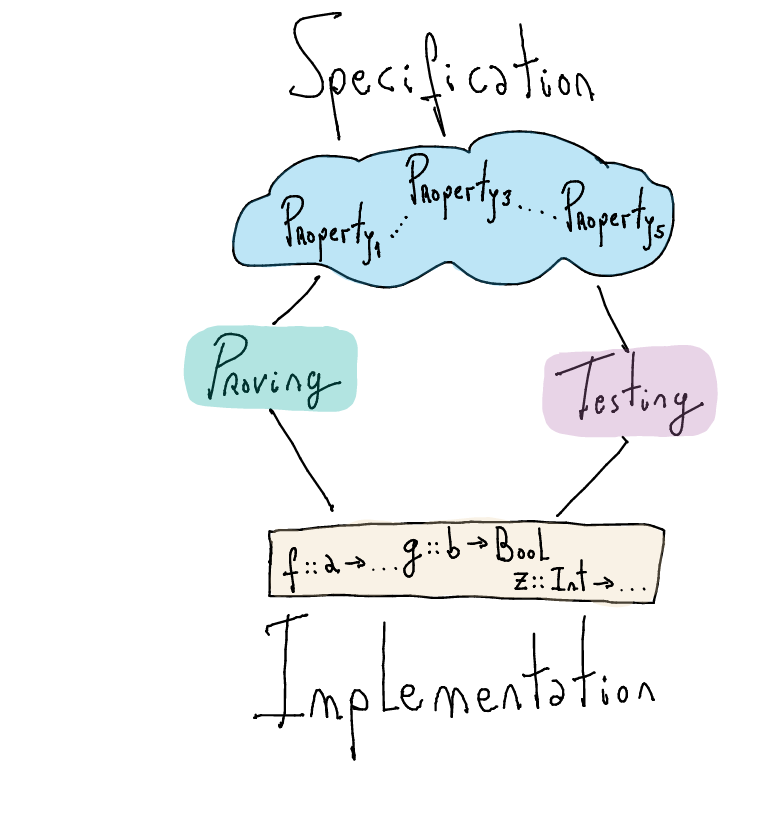 Specification
Property₁ ..... Property₃ ..... Property₅
Proving
Testing
f :: a → ... g :: b → Bool
z :: Int → ...
Implementation